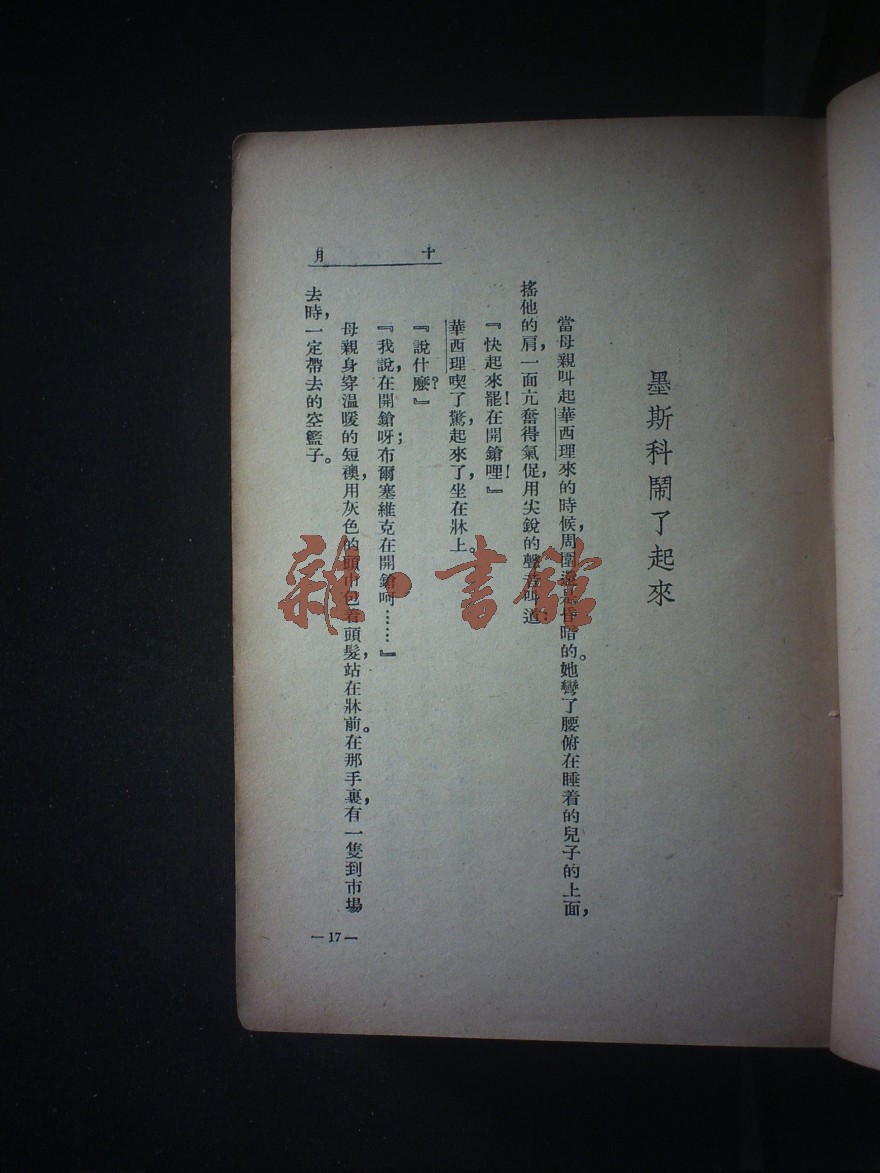 墨斯科鬧了起來
當母親叫起華西理來的時候,周圍還是昏暗的。她彎了腰俯在睡着的兒子的上面,
搖他的肩,一面亢奮得氣促,用尖銳的聲音叫道
『快起來罷!在開鎗哩!』
華西理喫了驚,起來了,坐在牀上。
『說什麼?』
『我說,在開鎗呀;布爾塞維克在開鎗呵……』
母親身穿溫暖的短襖,用灰色的頭巾包着頭髮,站在牀前。在那手裏,有一隻到市場
去時,一定帶去的空籃子。
十月
—17—
雜·書館